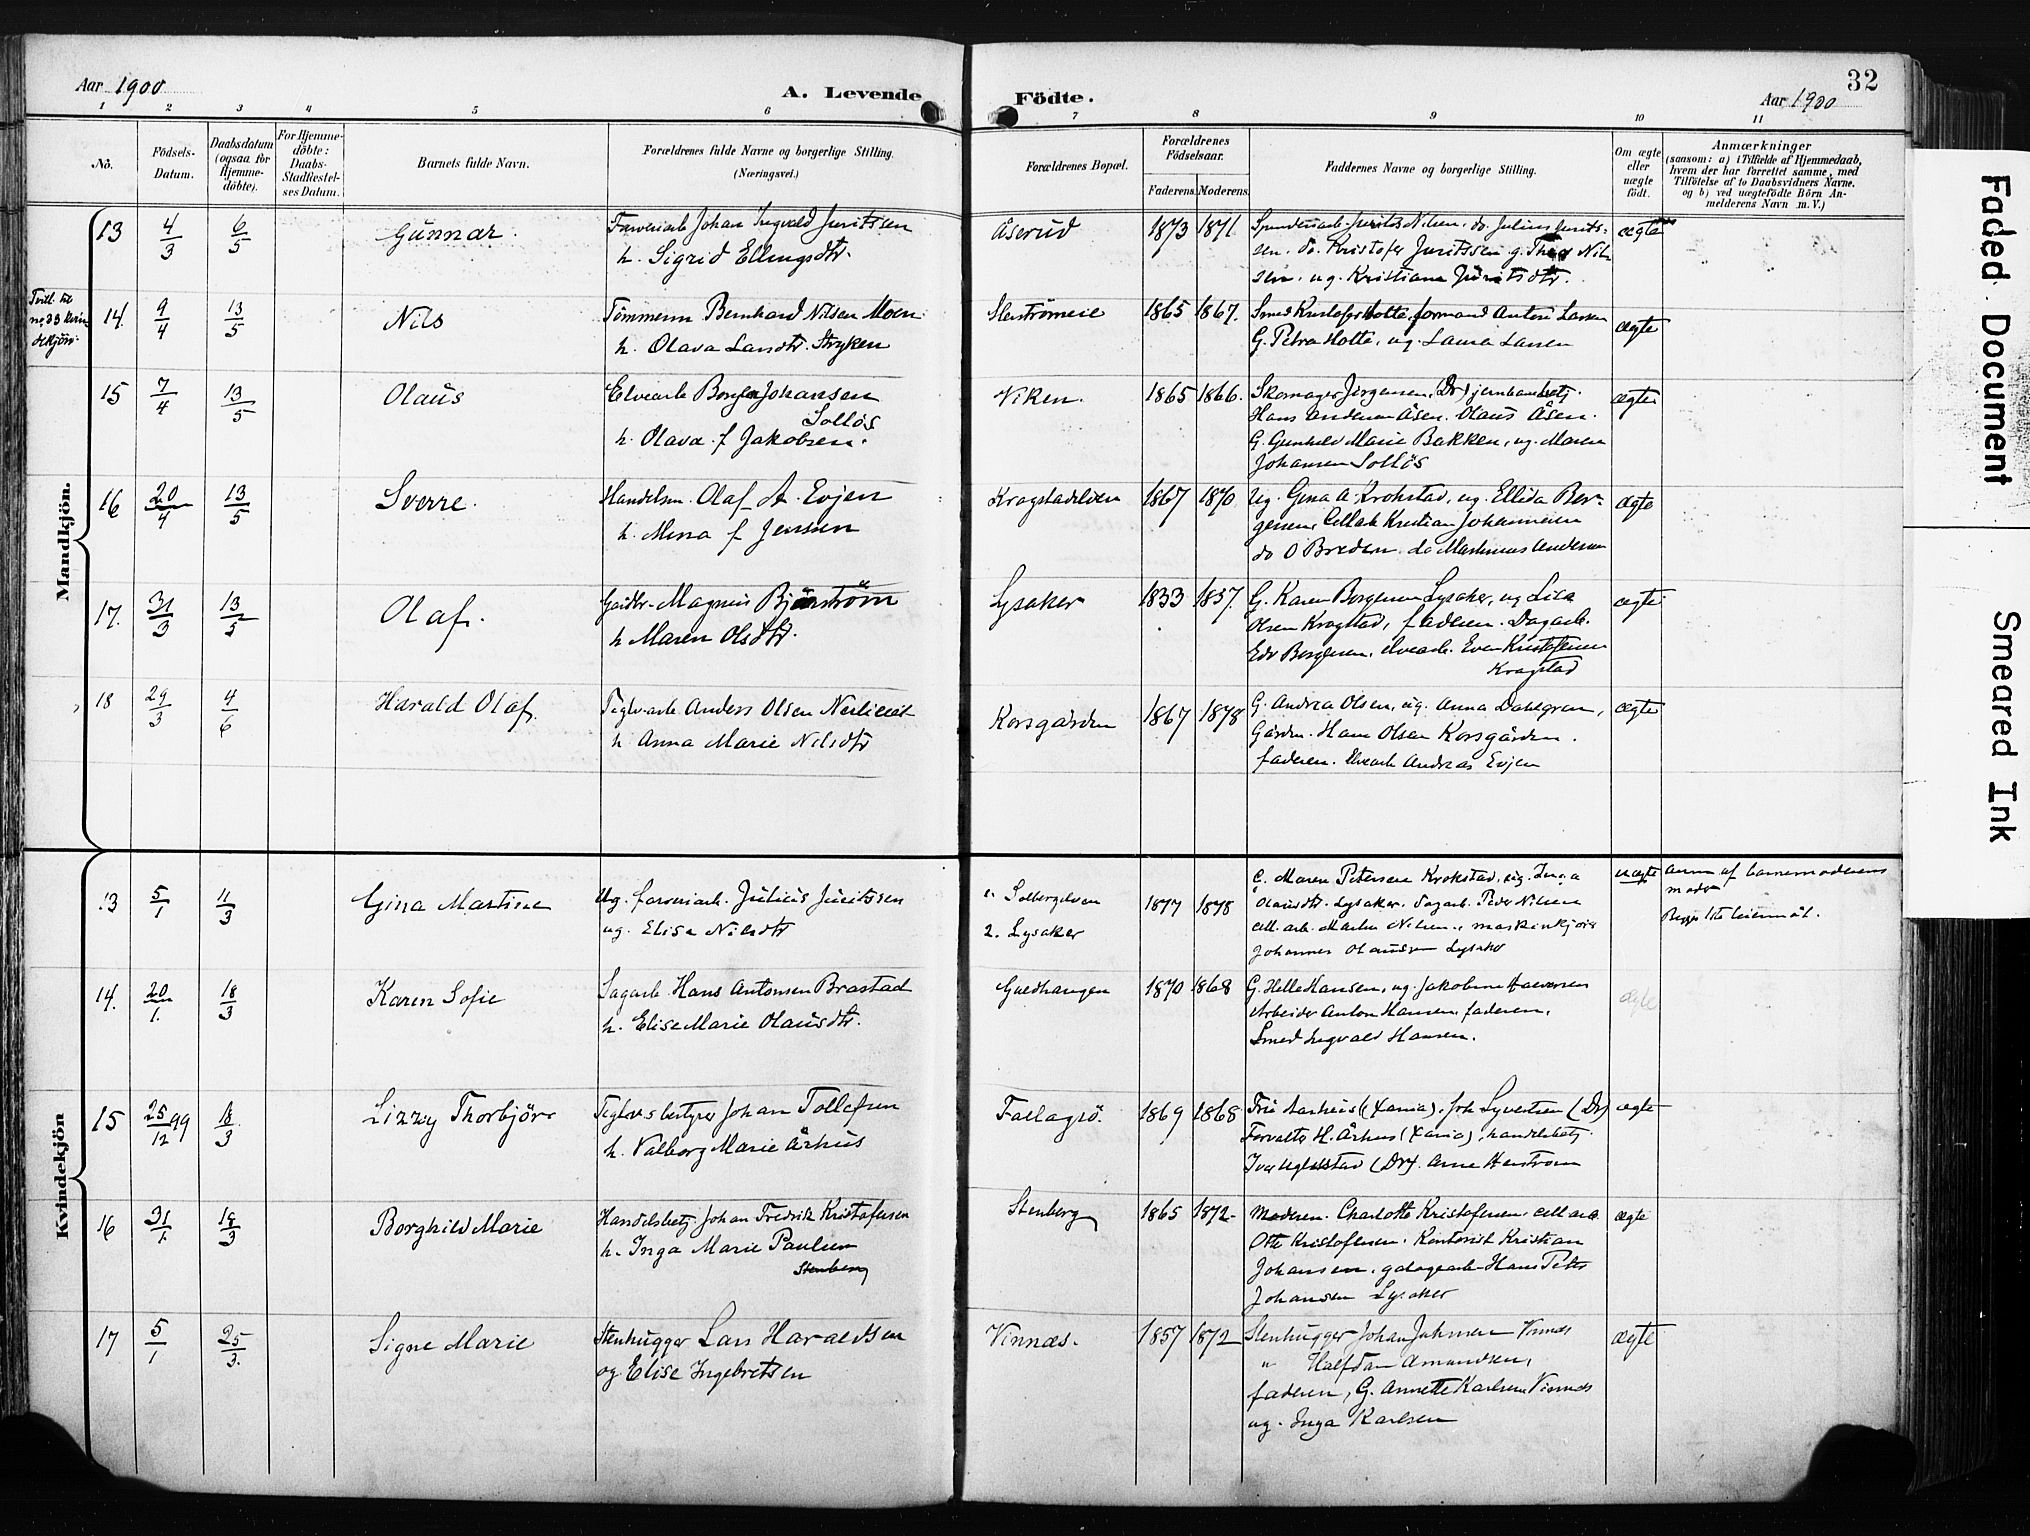 Aar 1900
A. Levende Födte.
Aar 1900
32
1 2 3 4 5 6 7 8 9 10 11
No.
Födsels-
Datum.
Daabsdatum
(ogsaa for
Hjemme-
döbte).
For Hjemme-
döbte:
Daabs-
Stadfæstel-
ses Datum.
Barnets fulde Navn.
Forældrenes fulde Navne og borgerlige Stilling.
(Næringsvei.)
Forældrenes Bopæl.
Forældrenes
Födselsaar.
Faderens. Moderens.
Faddernes Navne og borgerlige Stilling.
Om ægte
eller
uægte
födt.
Anmærkninger
(saasom: a) i Tilfælde af Hjemmedaab,
hvem der har forrettet samme, med
Tilföielse af to Daabsvidners Navne.
og b) ved uægtefödte Börn An-
melderens Navn m. V.)
Mandkjön.
13 4/3 6/5 Gunnar.
Farveriarb Johan Ingvald Juritsen
h. Sigrid Ellingsdtr.
Åserud 1873 1871
Jurits Nilsen, do. Julius Jurits-
sen. do. Kristofer Juritssen g. Thea Nil-
sen. ug. Kristiane Juritsdtr.
ægte
Tvill. til
no 33 kvin-
dekjön
14. 9/4 13/5 Nils
Tömmerm Bernhard Nilsen Moen
h. Olava Larsdtr. Stryken
1865 1867.
Smed Kristofer Holte, formand Anton Larsen
G. Petra Holte, ug. Laura Larsen
ægte
15 7/4 13/5 Olaus
Elvearb Borger Johansen
Sollös
h. Olava f Jakobsen.
Viken. 1865 1866.
Skomager Jörgensen (Dr) jernbanebetj.
Hans Andersen Åsen. Olaus Åsen.
G. Gunhild Marie Bakken, ug. Maren
Johansen Sollös
ægte
16 20/4 13/5 Sverre.
Handelsm. Olaf A. Evjen
h. Mina f Jenssen
Krogstadelven 1867 1870
Ug. Gina A. Krokstad, ug. Ellida Bor-
gersen, Cellarb Kristian Johannesen
do O Bredsen. do Martinus Andersen
ægte
17. 31/3 13/5 Olaf.
Gaardbr. Magnus Björström
h Maren Olsdtr.
Lysaker 1833 1857.
G. Karen Borgersen Lysaker, ug Lisa
Olsen Krogstad, faderen. Dagarb.
Edv Borgersen, elvearb. Even Kristofersen
Krogstad
ægte
18 29/3 4/6 Harald Olaf.
Teglv.arb. Anders Olsen
h Anna Marie Nilsdtr
Korsgården 1867 1878
G. Andrea Olsen, ug. Anna Dahlgren,
Gårdm. Hans Olsen Korsgården.
faderen. Elvearb Andreas Evjen
ægte
Kvindekjön
13 5/1 11/3 Gina Martine
Ug. farveriarb. Julius Juritssen
ug. Elise Nilsdtr
1. Solbergelven
2. Lysaker
1877 1878
G. Maren Petersen Krokstad, ug. Inga
Olausdtr. Lysaker. Dagarb. Peder Nilsen
cell. arb. Martin Nilsen, maskinkjörer
Johannes Olaussen Lysaker
uægte
anm af barnemoderens
moder
Begges 1ste leiermål.
14. 20/1. 18/3 Karen Sofie
Sagarb Hans Antonsen Brastad
h. Elise Marie Olausdtr.
Guldhaugen 1870 1868
G. Helle Hansen, ug. Jakobine Halvorsen
Arbeider Anton Hansen, faderen,
Smed Ingvald Hansen.
ægte
15 25/12 99 18/3 Lizzy Thorbjörg
Teglv.s bestyrer Johan Tollefsen
h. Valborg Marie Århus
Fallagsö. 1869 1868
Fru Aarhus (Xania). frk Syvertsen (Dr)
Forvalter H. Århus (Xania), handelsbetj.
Ivar Uglestad (Dr). Arne Herstrøm
ægte
16 31/1. 18/3 Borghild Marie
Handelsbetj. Johan Fredrik Kristofersen
h. Inga Marie Paulsen
Stenberg
Stenberg 1865 1872
Moderen. Charlotte Kristofersen. cell arb
Otto Kristofersen. Kontorist Kristian
Johansen. Hans Peter
Johansen Lysaker
ægte
17 5/1 25/3. Signe Marie
Stenhugger Lars Haraldsen
og Elise Ingebretsen
Vinnæs. 1857 1872
Stenhugger Johan Johnsen Vinnæs
" Halfdan Amundsen,
faderen, G. Annette Karlsen Vinnæs
ug. Inga Karlsen
ægte
Faded Document
Smeared Ink